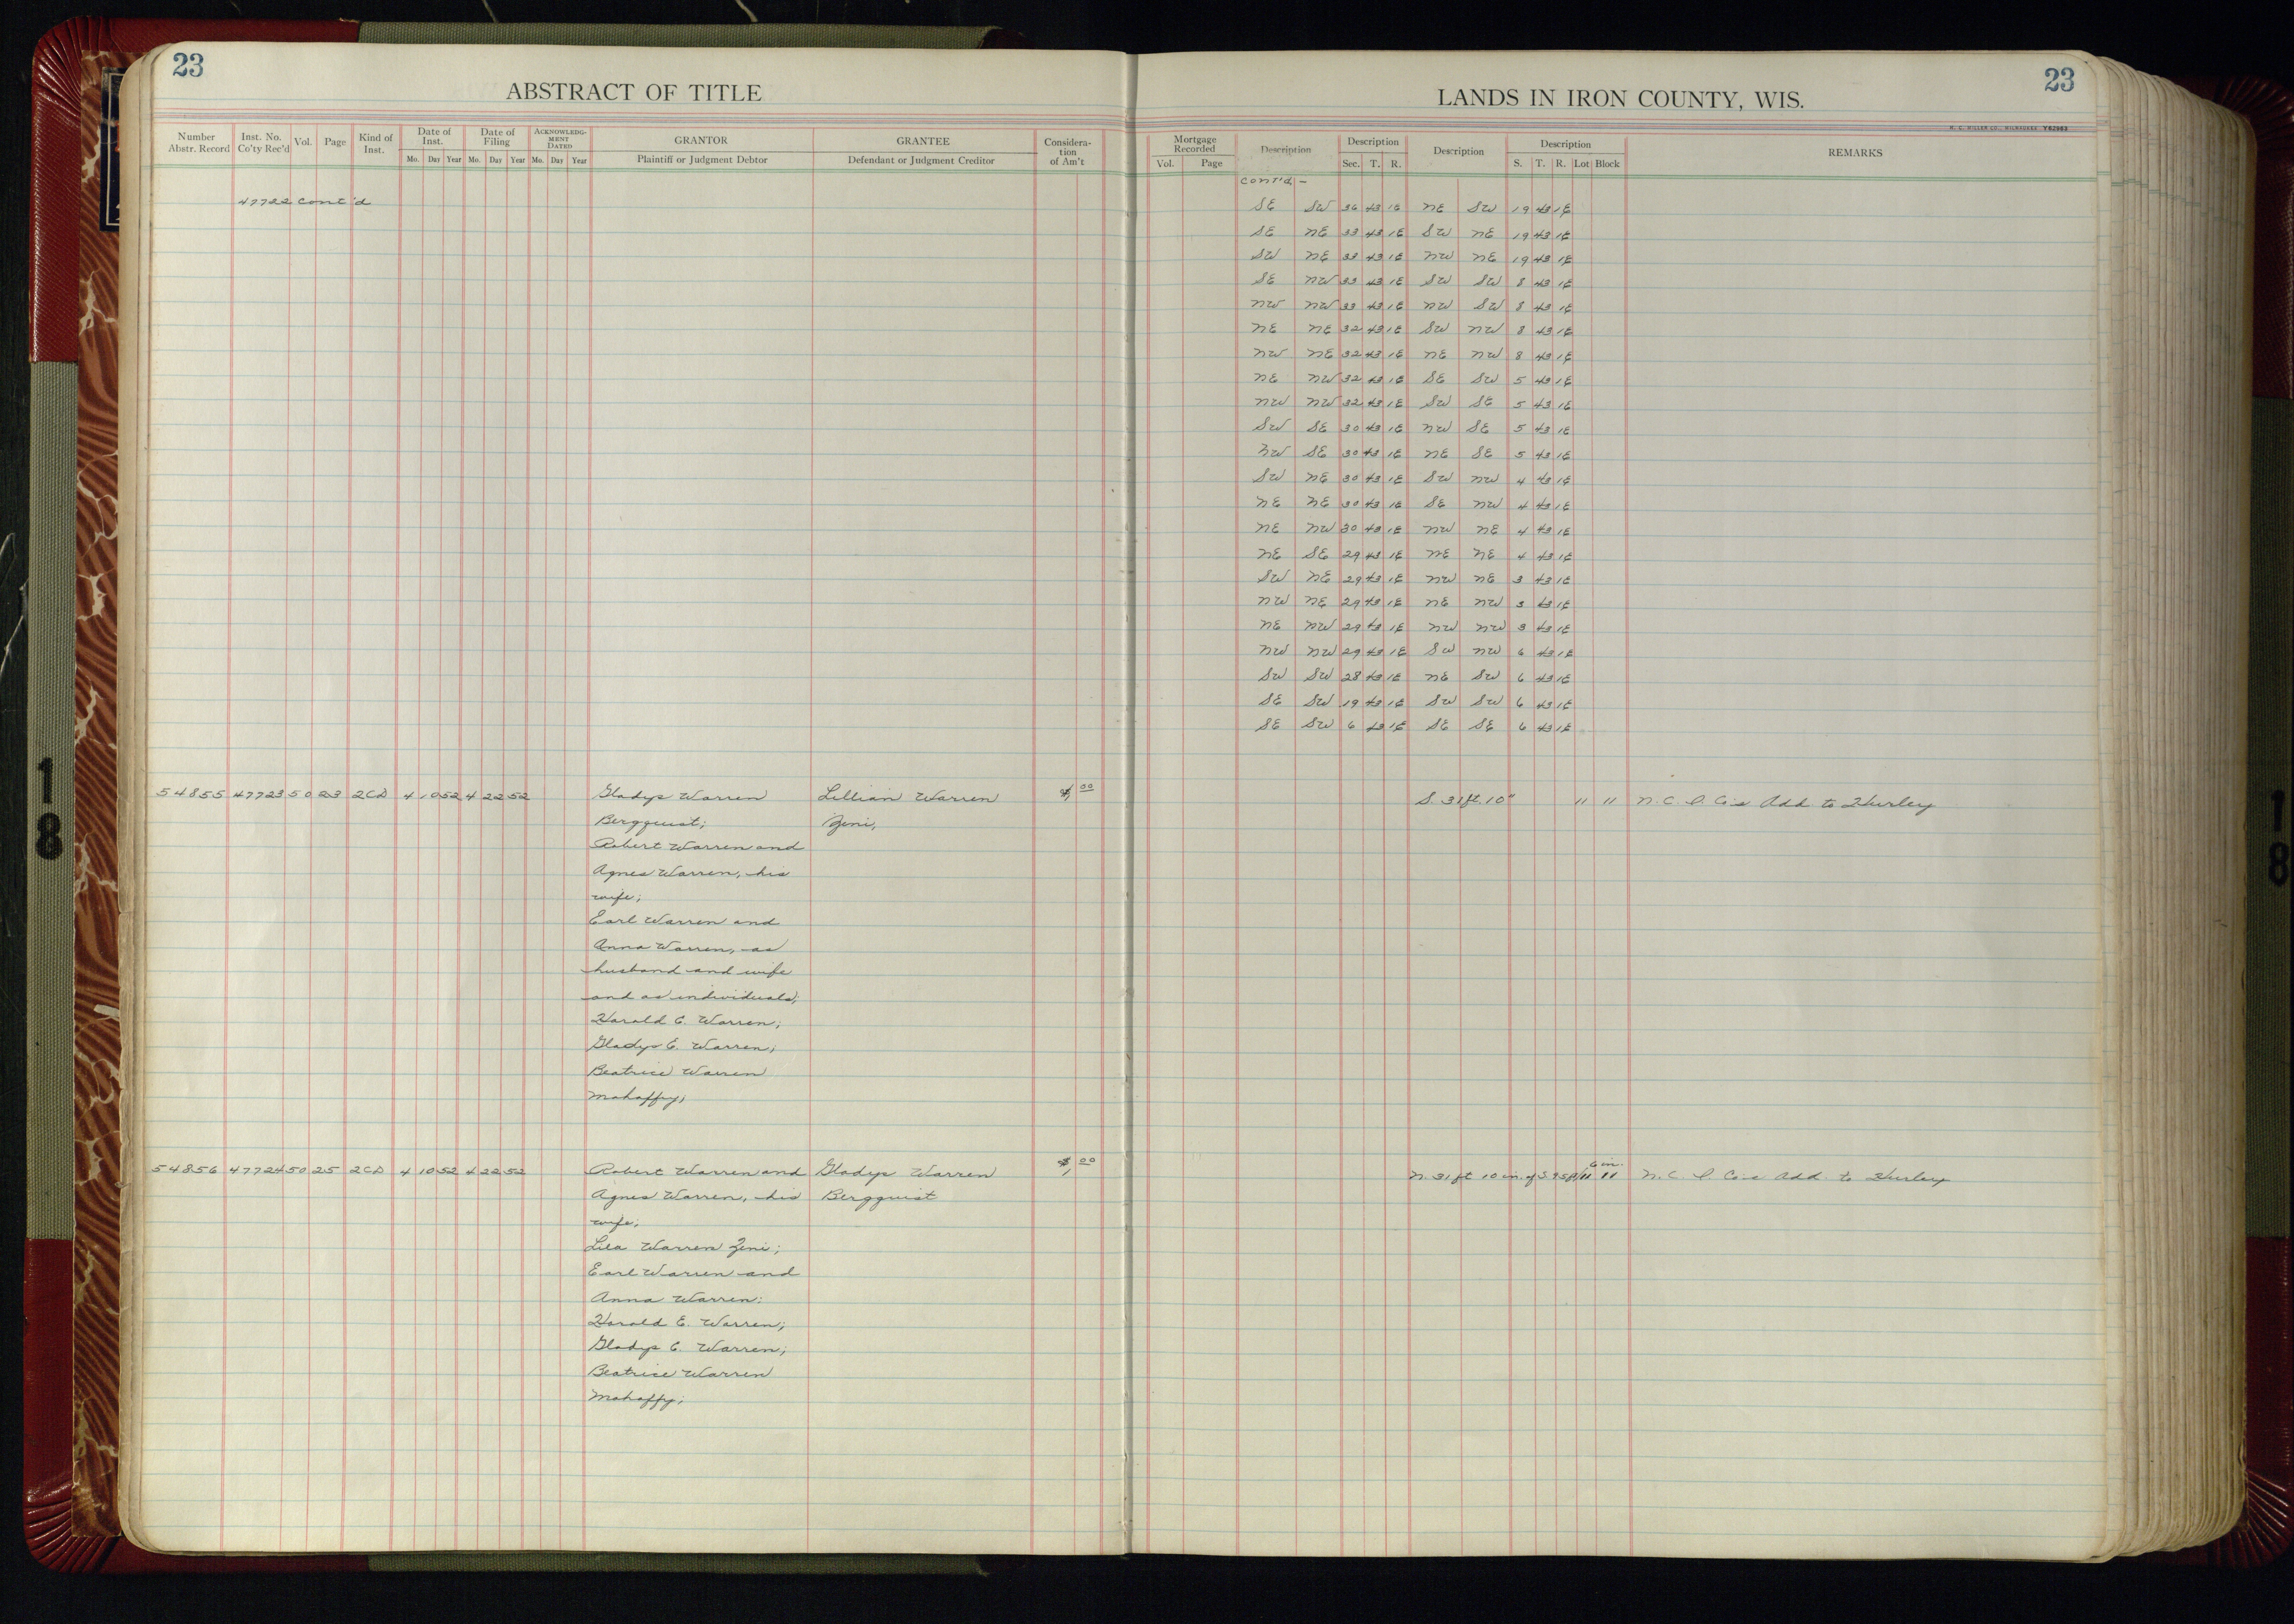 23
ABSTRACT OF TITLE
Number Abstr. Record | Inst. No. Co'ty Rec'd | Vol. | Page | Kind of Inst. | Date of Inst. Mo. Day Year | Date of Filing Mo. Day Year | ACKNOWLEDGMENT DATED Mo. Day Year | GRANTOR Plaintiff or Judgment Debtor | GRANTEE Defendant or Judgment Creditor | Consideration of Am't
47722 cont'd
54855 47723 50 23 2CD 4 10 52 4 22 52 Gladys Warren Lillian Warren $1 00
Bergquist; Zeni,
Robert Warren and
Agnes Warren, his
wife;
Earl Warren and
Anna Warren, as
husband and wife
and as individuals;
Harold E. Warren;
Gladys E. Warren;
Beatrice Warren
Mahaffy;
54856 47724 50 25 2CD 4 10 52 4 22 52 Robert Warren and Gladys Warren $1 00
Agnes Warren, his Bergquist
wife;
Lila Warren Zeni;
Earl Warren and
Anna Warren;
Harold E. Warren;
Gladys E. Warren;
Beatrice Warren
Mahaffy;
23
LANDS IN IRON COUNTY, WIS.
H. C. MILLER CO., MILWAUKEE Y62963
Mortgage Recorded Vol. Page | Description | Description Sec. T. R. | Description | Description S. T. R. Lot Block | REMARKS
Cont'd -
SE SW 36 43 1E NE SW 19 43 1E
SE NE 33 43 1E SW NE 19 43 1E
SW NE 33 43 1E NW NE 19 43 1E
SE NW 33 43 1E SW SW 8 43 1E
NW NW 33 43 1E NW SW 8 43 1E
NE NE 32 43 1E SW NW 8 43 1E
NW NE 32 43 1E NE NW 8 43 1E
NE NW 32 43 1E SE SW 5 43 1E
NW NW 32 43 1E SW SE 5 43 1E
SW SE 30 43 1E NW SE 5 43 1E
NW SE 30 43 1E NE SE 5 43 1E
SW NE 30 43 1E SW NW 4 43 1E
NE NE 30 43 1E SE NW 4 43 1E
NE NW 30 43 1E NW NE 4 43 1E
NE SE 29 43 1E NE NE 4 43 1E
SW NE 29 43 1E NW NE 3 43 1E
NW NE 29 43 1E NE NW 3 43 1E
NE NW 29 43 1E NW NW 3 43 1E
NW NW 29 43 1E SW NW 6 43 1E
SW SW 28 43 1E NE SW 6 43 1E
SE SW 19 43 1E SW SW 6 43 1E
SE SW 6 43 1E SE SE 6 43 1E
S. 31 ft. 10" 11 11 N. C. I. Co's Add to Hurley
6 in.
N. 31 ft 10 in. of S. 95 ft 11 11 N. C. I. Co's Add. to Hurley
18
18